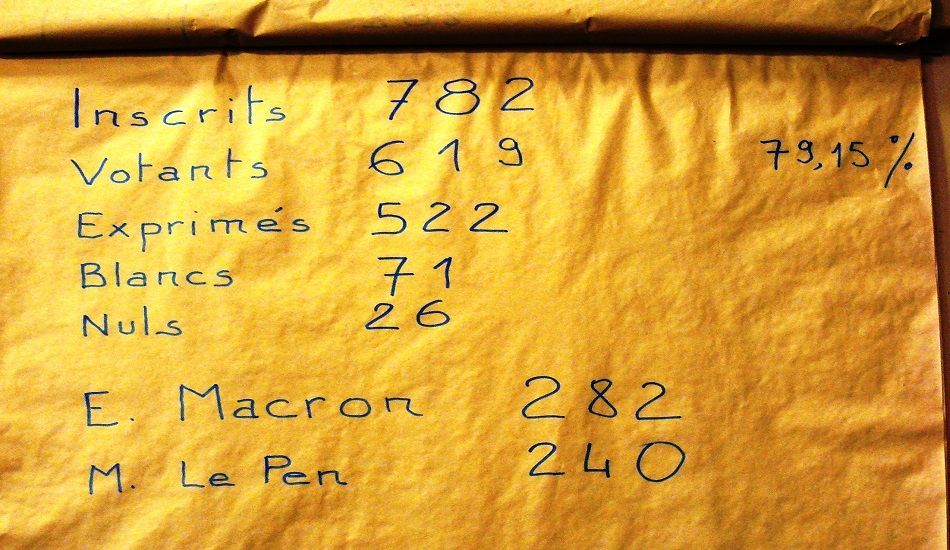 Inscrits 782
Votants 619 79,15 %
Exprimés 522
Blancs 71
Nuls 26
E. Macron 282
M. Le Pen 240